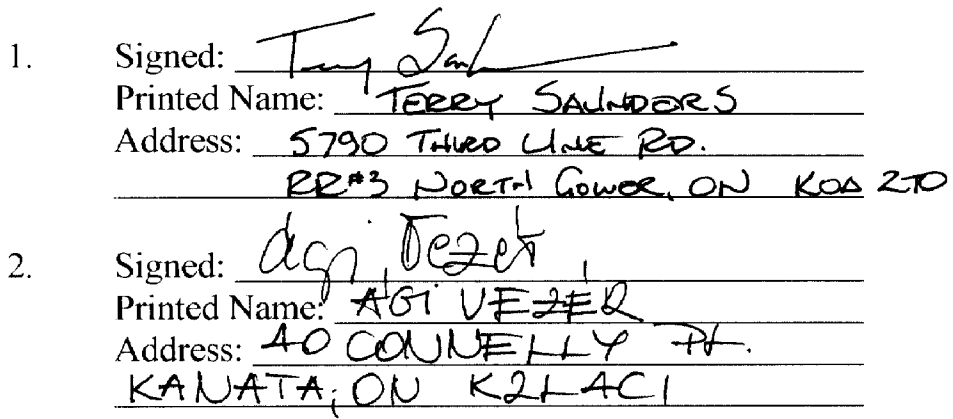 1. Signed: Terry Sau
Printed Name: TERRY SAUNDERS
Address: 5790 THIRD LINE RD.
RR#3 NORTH GOWER, ON K0A 2T0
2. Signed: Agi Vezer
Printed Name: AGI VEZÉR
Address: 40 CONNELLY
KANATA, ON K2L